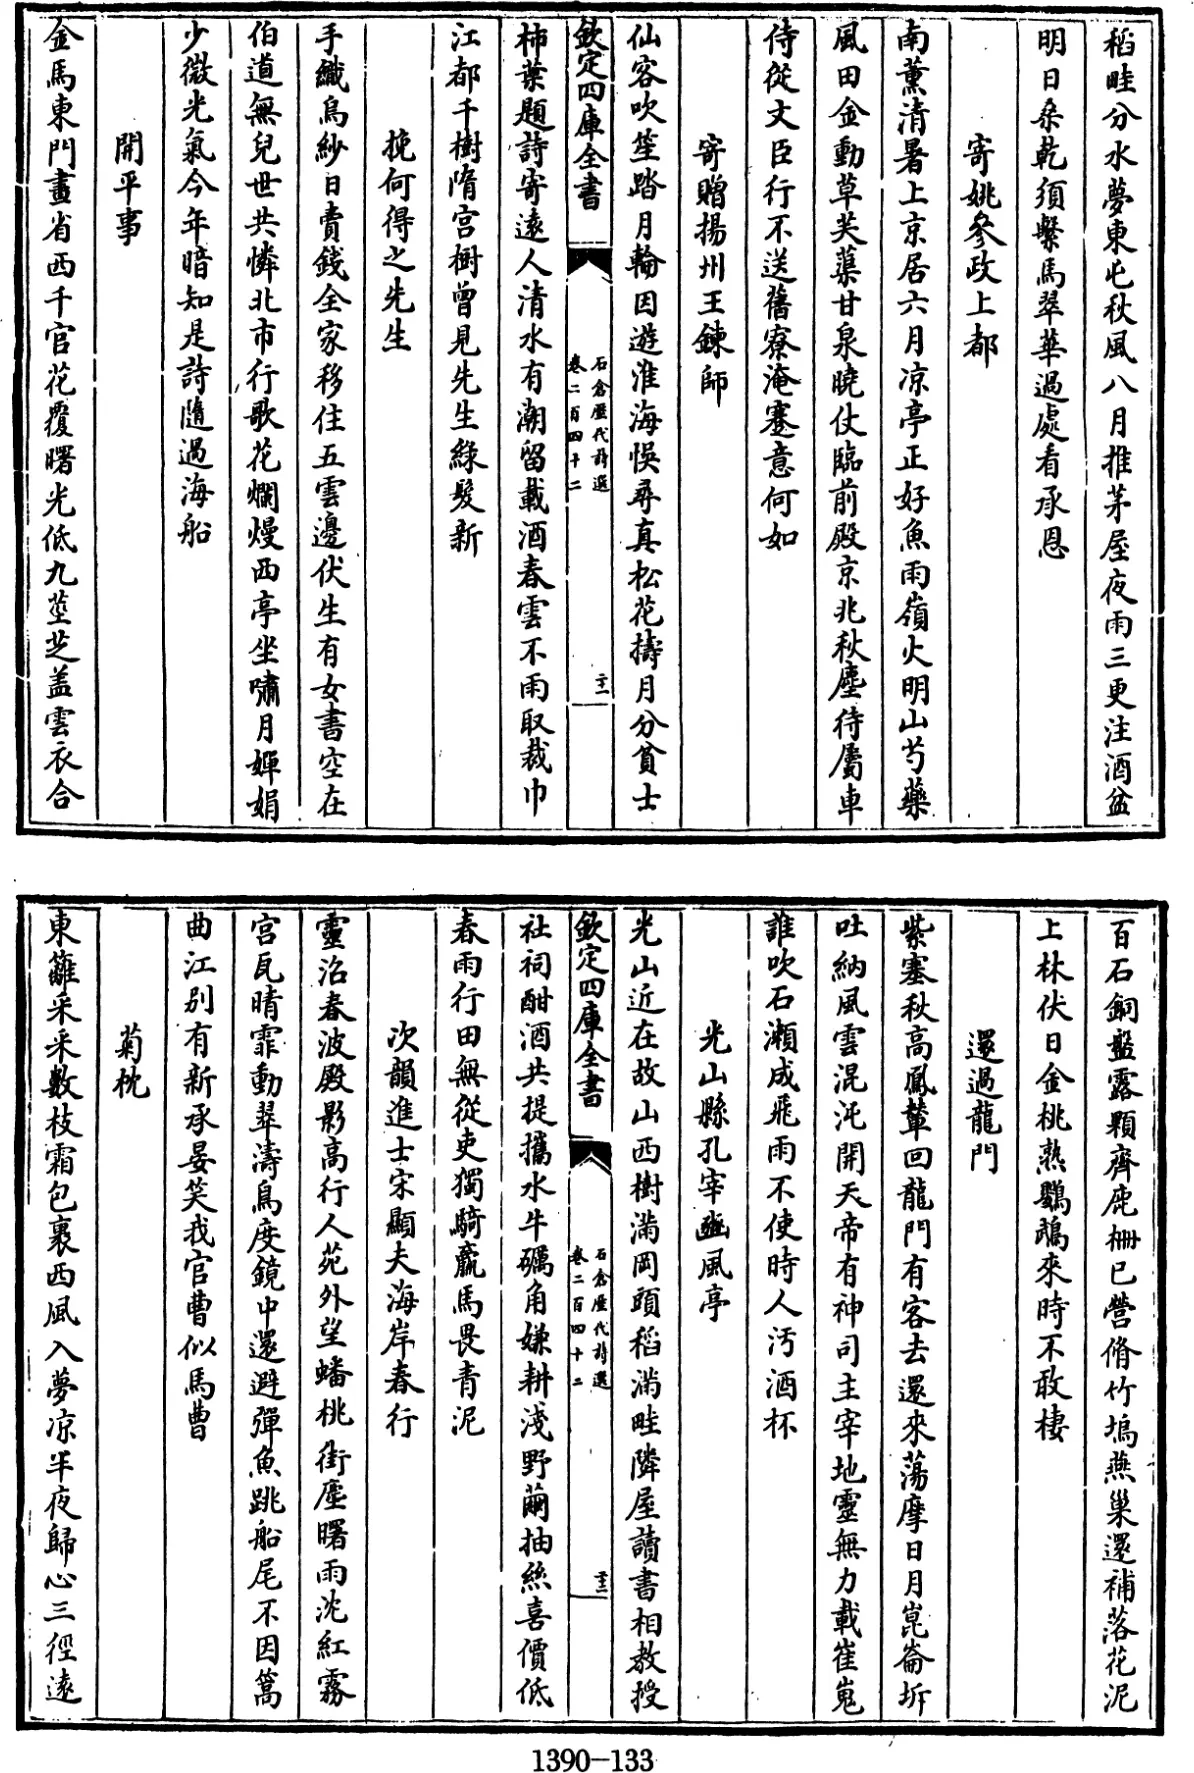 稻畦分水夢東屯秋風八月推茅屋夜雨三更注酒盆
明日桑乾須繫馬翠華過處看承恩
寄姚參政上都
南薰清暑上京居六月凉亭正好魚雨嶺火明山芍藥
風田金動草芙蕖甘泉曉仗臨前殿京兆秋塵待屬車
侍從文臣行不送舊寮淹蹇意何如
寄贈揚州王鍊師
仙客吹笙踏月輪因遊淮海悞尋真松花擣月分貧士
欽定四庫全書
石倉歷代詩選
卷二百四十二
二十一
柿葉題詩寄遠人清水有潮留載酒春雲不雨取裁巾
江都千樹隋宫樹曾見先生綠髮新
挽何得之先生
手織烏紗日賣錢全家移住五雲邊伏生有女書空在
伯道無兒世共憐北市行歌花爛熳西亭坐嘯月嬋娟
少微光氣今年暗知是詩隨過海船
開平事
金馬東門畫省西千官花覆曙光低九莖芝盖雲衣合
百石銅盤露顆齊鹿柵已營脩竹塢燕巢還補落花泥
上林伏日金桃熟鸚鵡來時不敢棲
還過龍門
紫塞秋高鳳輦回龍門有客去還來蕩摩日月崑崙圻
吐納風雲混沌開天帝有神司主宰地靈無力載崔嵬
誰吹石瀨成飛雨不使時人汚酒杯
光山縣孔宰豳風亭
光山近在故山西樹滿岡頭稻滿畦隣屋讀書相教授
欽定四庫全書
石倉歷代詩選
卷二百四十二
二十二
社祠酣酒共提攜水牛礪角嫌耕淺野繭抽絲喜價低
春雨行田無從吏獨騎羸馬畏青泥
次韻進士宋顯夫海岸春行
靈沼春波殿影高行人苑外望蟠桃街塵曙雨沈紅霧
宫瓦晴霏動翠濤鳥度鏡中還避彈魚跳船尾不因篙
曲江别有新承宴笑我官曹似馬曹
菊枕
東籬采采數枝霜包裹西風入夢凉半夜歸心三徑遠
1390-133